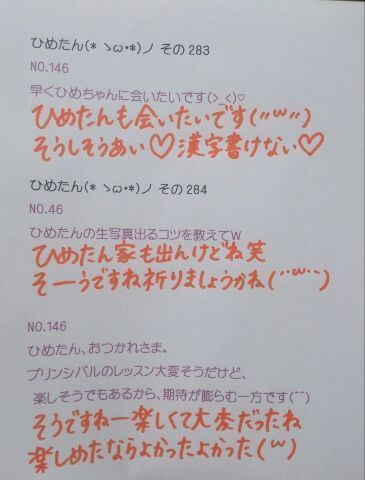 ひめたん(* ゝω・*)ノ その283
NO.146
早くひめちゃんに会いたいです(>_<)♡
ひめたんも会いたいです(〃w〃)
そうしそうあい♡漢字書けない♡
ひめたん(* ゝω・*)ノ その284
NO.46
ひめたんの生写真出るコツを教えてW
ひめたん家も出んけどね笑
そーうですね祈りましょうかね(¨w¨)
NO.146
ひめたん、おつかれさま。
プリンシパルのレッスン大変そうだけど、
楽しそうでもあるから、期待が膨らむ一方です(^^)
そうですねー楽しくて大変だったね
楽しめたならよかったよかった(w)